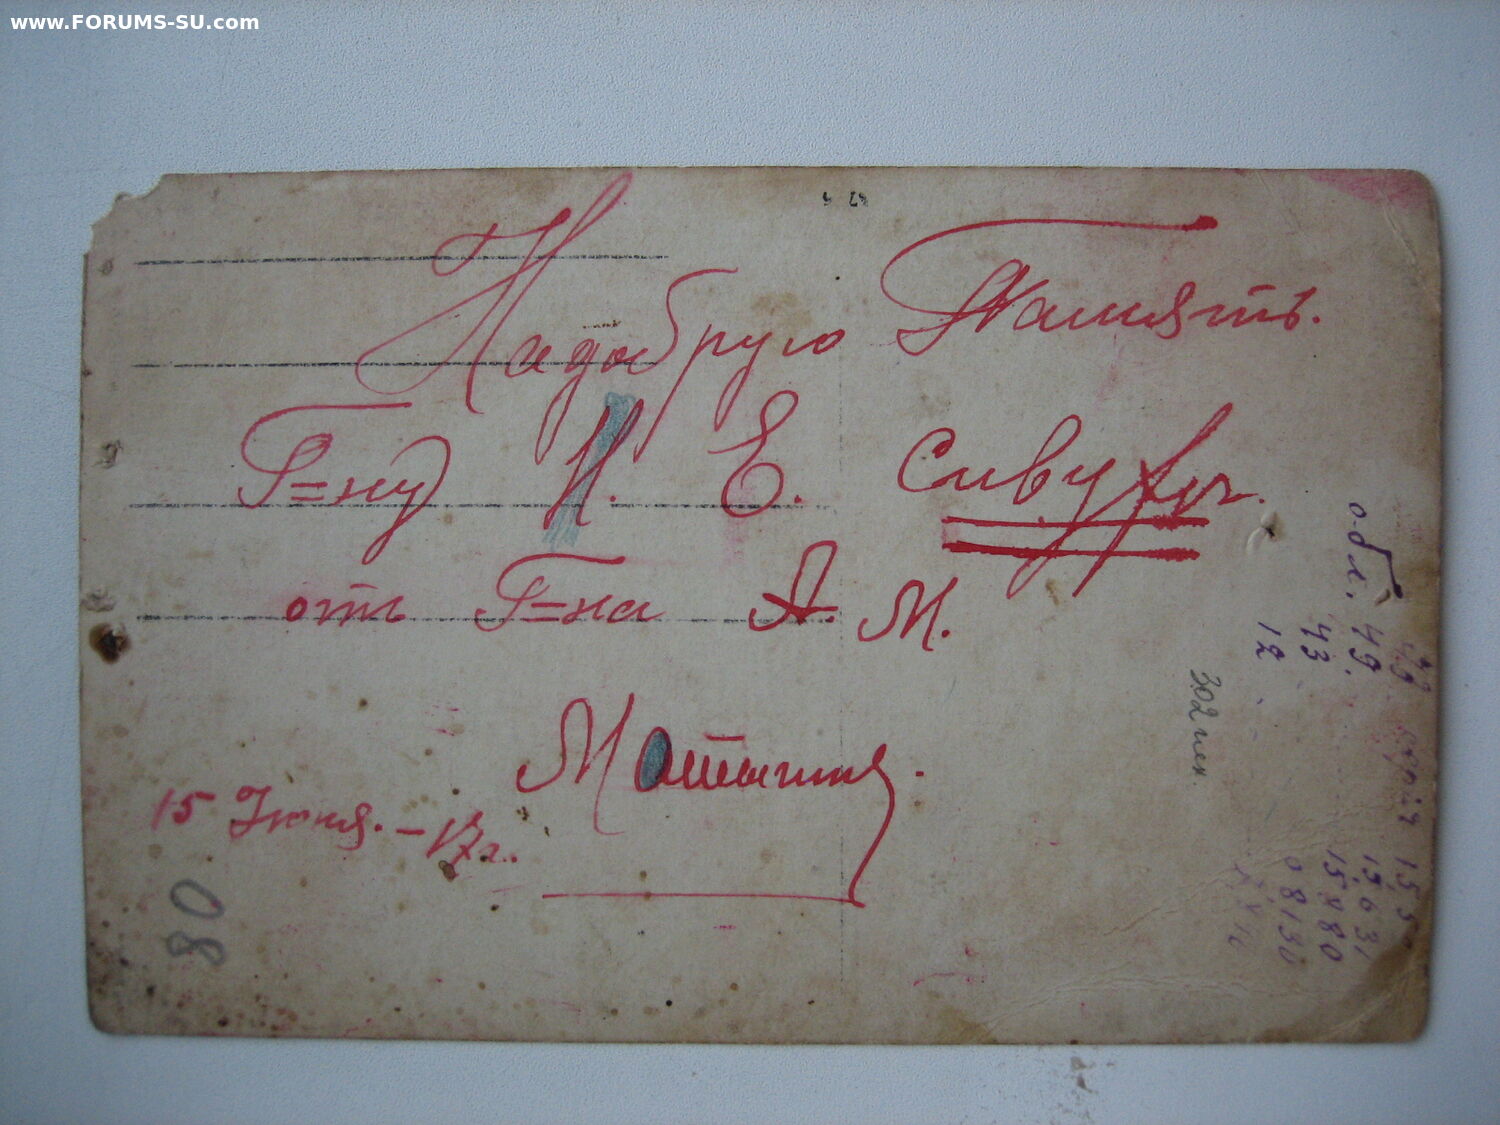 www.FORUMS-SU.com
Надобрую Память.
Г=ну Н. Е. Сивухи.
отъ Г=на А. М.
Мотыгина.
15 Июня. – 17г.
80
обл. 49.
43
12
302 чел.
15631
15880
08130